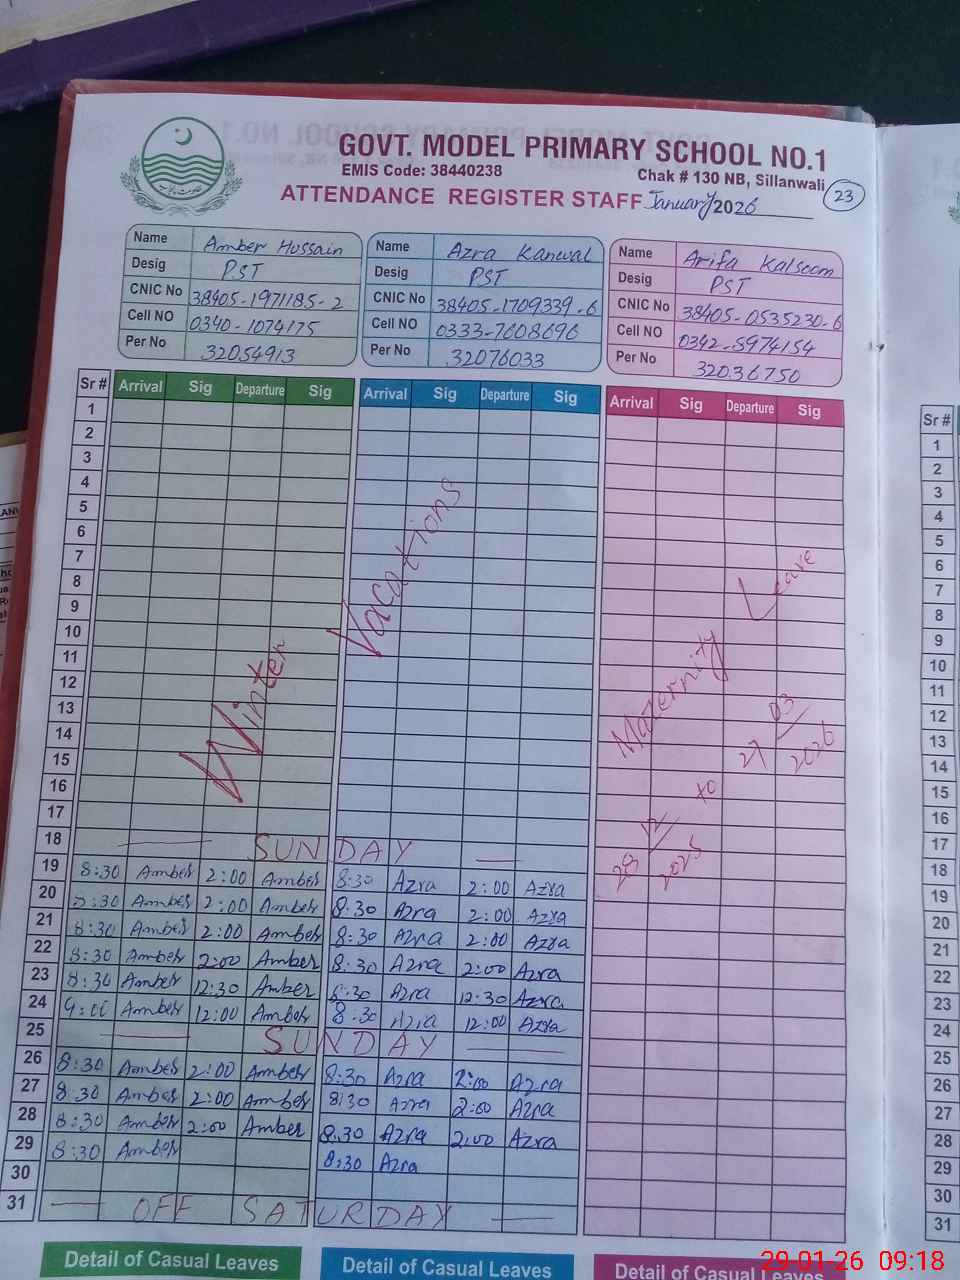 GOVT. MODEL PRIMARY SCHOOL NO.1
EMIS Code: 38440238
Chak # 130 NB, Sillanwali
ATTENDANCE REGISTER STAFF January 2026
23
Name Amber Hussain
Desig PST
CNIC No 38405-1971185-2
Cell NO 0340-1074175
Per No 32054913
Name Azra Kanwal
Desig PST
CNIC No 38405-1709339-6
Cell NO 0333-7608696
Per No 32076033
Name Arifa Kalsoom
Desig PST
CNIC No 38405-0535230-6
Cell NO 0342-5974154
Per No 32036750
Sr # Arrival Sig Departure Sig Arrival Sig Departure Sig Arrival Sig Departure Sig
1
2
3
4
5
6
7
8
9
10
11
12
13
14
15
16
17
Winter Vacations
Maternity Leave
28/12/2025 to 27/03/2026
18 SUNDAY
19 8:30 Amber 2:00 Amber 8:30 Azra 2:00 Azra
20 8:30 Amber 2:00 Amber 8:30 Azra 2:00 Azra
21 8:30 Amber 2:00 Amber 8:30 Azra 2:00 Azra
22 8:30 Amber 2:00 Amber 8:30 Azra 2:00 Azra
23 8:30 Amber 12:30 Amber 8:30 Azra 12:30 Azra
24 9:00 Amber 12:00 Amber 8:30 Azra 12:00 Azra
25 SUNDAY
26 8:30 Amber 2:00 Amber 8:30 Azra 2:00 Azra
27 8:30 Amber 2:00 Amber 8:30 Azra 2:00 Azra
28 8:30 Amber 2:00 Amber 8:30 Azra 2:00 Azra
29 8:30 Amber 8:30 Azra
30
31 OFF SATURDAY
Detail of Casual Leaves
Detail of Casual Leaves
Detail of Casual Leaves
Sr #
1
2
3
4
5
6
7
8
9
10
11
12
13
14
15
16
17
18
19
20
21
22
23
24
25
26
27
28
29
30
31
29-01-26 09:18